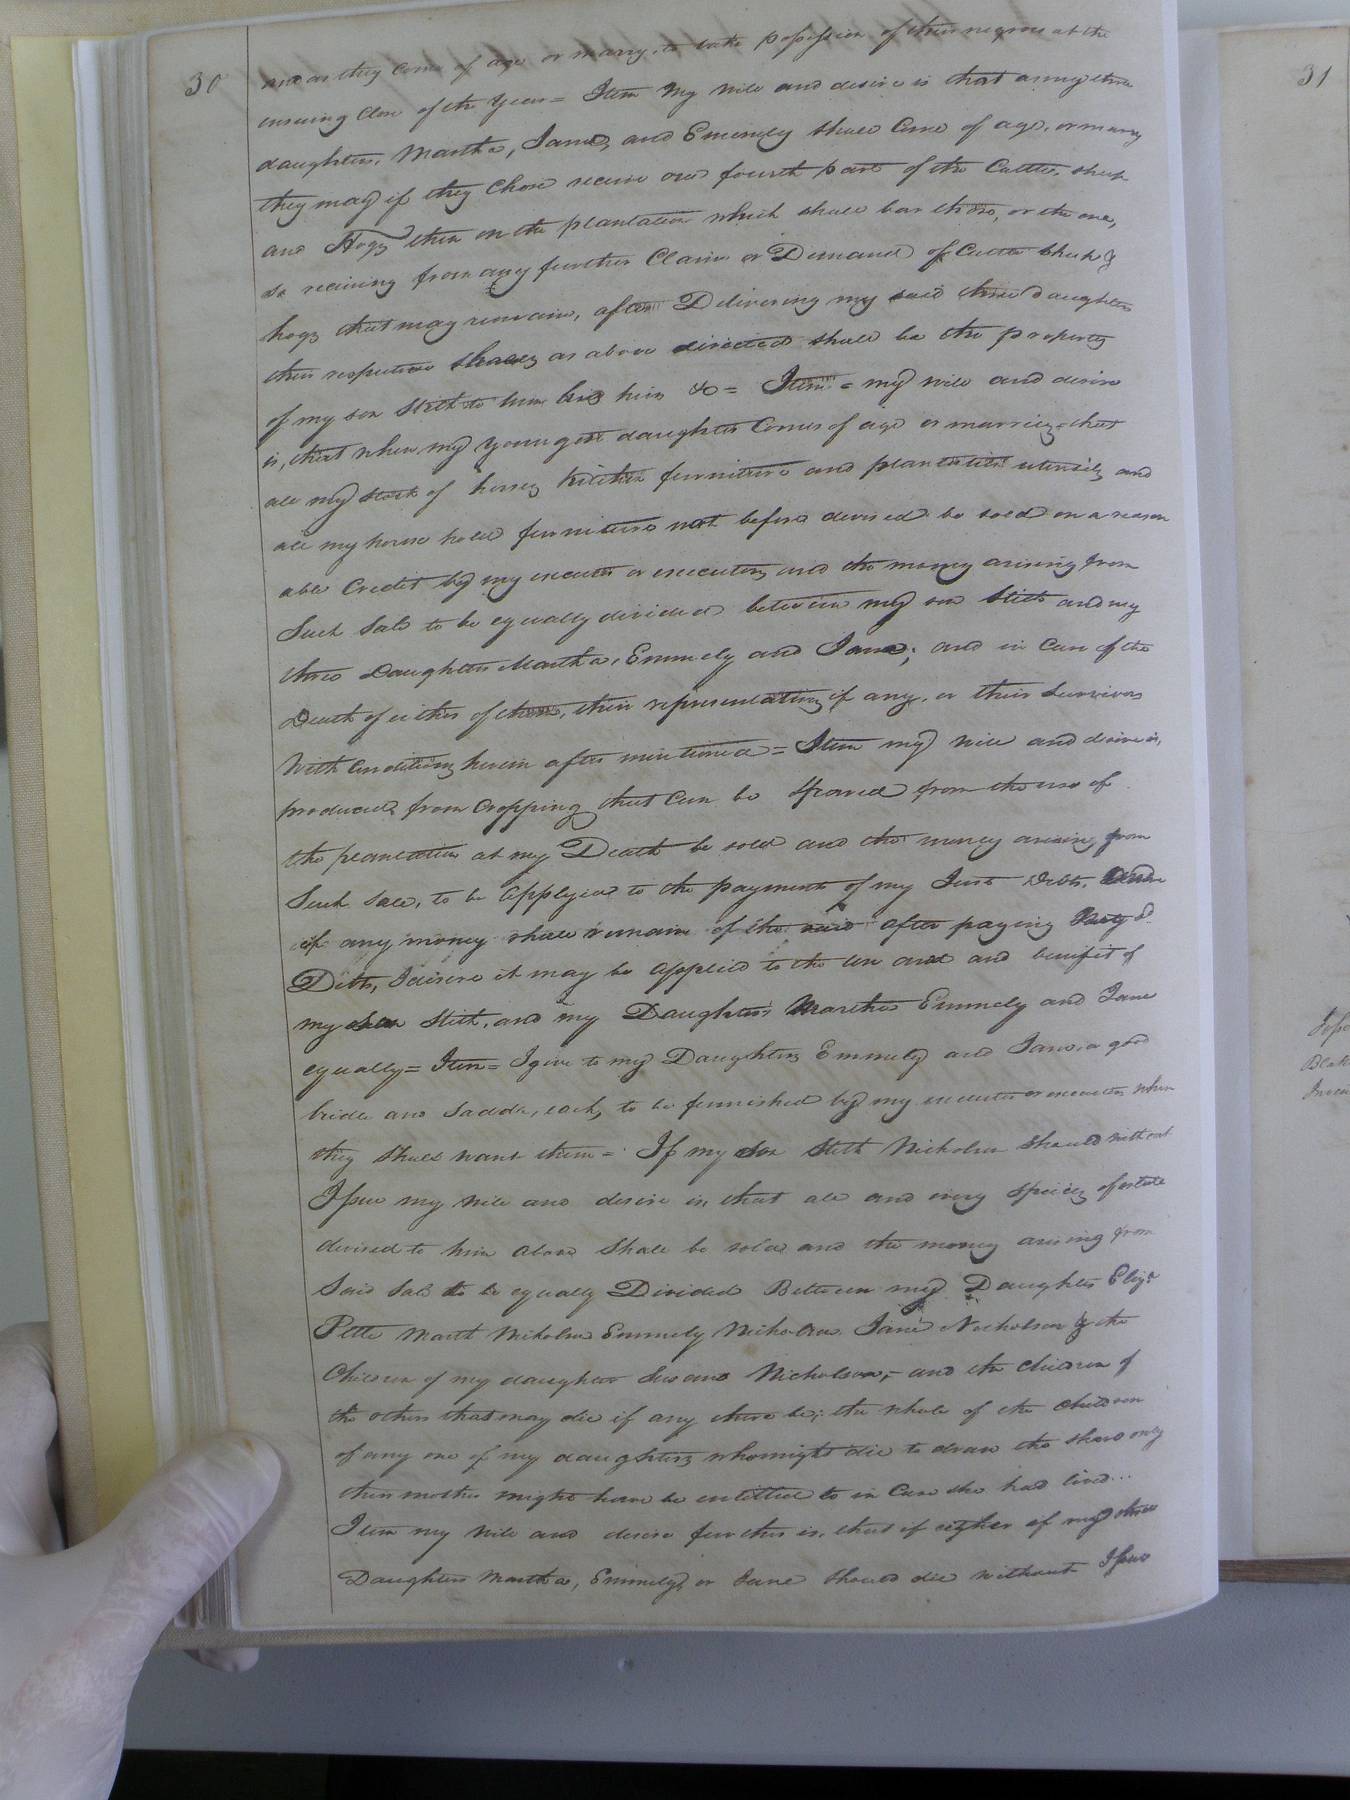 30
and as they come of age or marry, to take possession of their negroes at the
ensuing close of the year = Item My will and desire is that as my three
daughters, Martha, Jane, and Emmely shall come of age, or marry
they may if they chose receive one fourth part of the Cattle, sheep
and Hogs then on the plantation which shall bar them, or the one,
so receiving from any further Claim or Demand of Cattle sheep &
hogs that may remain, after Delivering my said three daughters
their respective shares as above directed shall be the property
of my son Stith to him his heirs &c = Item = my will and desire
is, that when my youngest daughter Comes of age or marries, that
all my stock of horses Kitchen furniture and plantation utensils and
all my house hold furniture not before devised be sold on a reason
able Credit by my executor or executors and the money arising from
Such Sale to be equally divided between my son Stith and my
three Daughters Martha, Emmely and Jane; and in Case of the
Death of either of them, their representatives if any, or their Survivors
With Conditions herein after mentioned = Item my will and desire is,
produce from Cropping that can be spared from the use of
the plantation at my Death be sold and the money arising from
Such sale, to be applyed to the payment of my Just Debts, and
if any money shall remain of the said after paying
Debts, I desire it may be applied to the use and and benifit of
my son Stith, and my Daughters Martha Emmely and Jane
equally = Item = I give to my Daughters Emmely and Jane a good
bridle and Saddle, each, to be furnished by my executor or executors when
they shall want them = If my son Stith Nicholson should without
Issue my will and desire is, that all and every species of estate
devised to him above Shall be sold and the money arising from
Said Sale to be equally Divided Between my Daughter Eliza
Pette Marth Nicholson Emmely Nicholson Jane Nicholson & the
Children of my daughter Susana Nicholson, - and the children of
the others that may die if any there be; the whole of the children
of any one of my daughters who might die to draw the share only
their mother might have be entitled to in Case she had lived...
Item my will and desire further is, that if either of my three
Daughters Martha, Emmely, or Jane should die without Issue
31